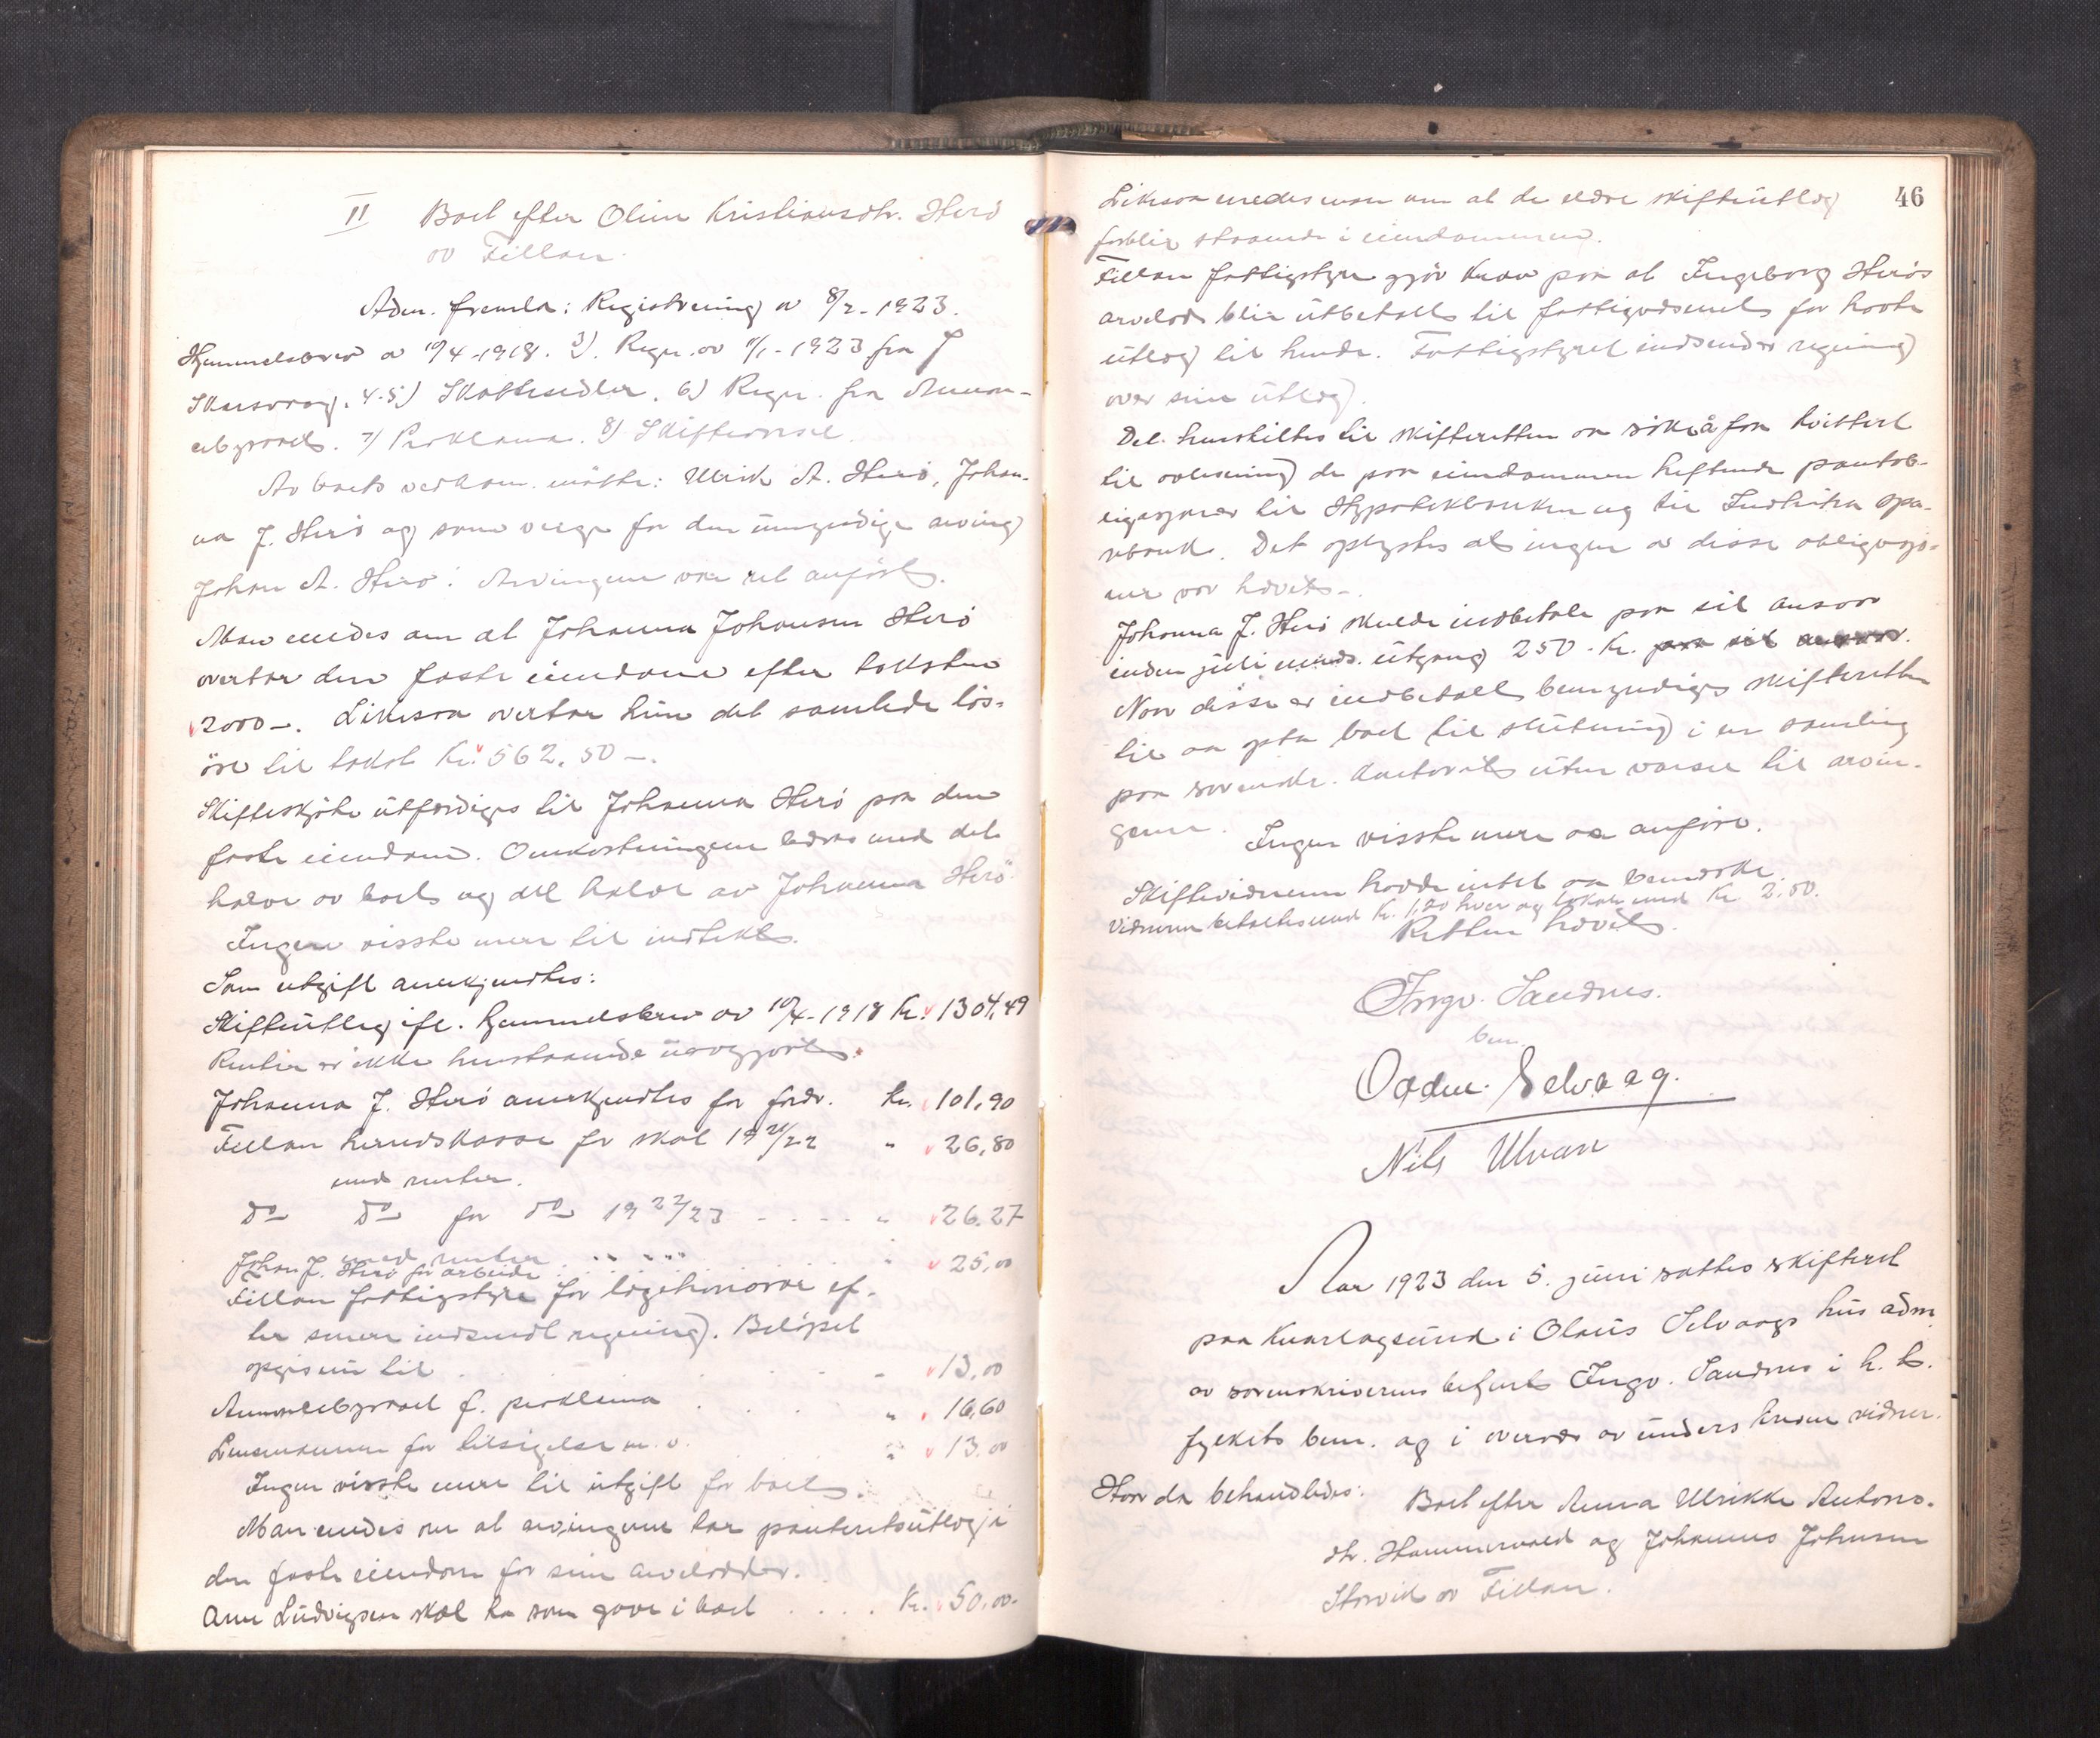 II Boet efter Oline Kristiansdtr. Herö
av Fillan.
Adm. fremla: Registrering av 8/2 - 1923.
Hjemmelsbrev av 10/4 - 1918. 3). Regn. av 11/1 - 1923 fra J
Skarsvaag. 4-5) Skattesedler. 6) Regn. fra Annon-
cebyraaet. 7) Proklama. 8) Skiftevarsel.
Av boets vedkom. mötte: Ulrik A. Herö, Johan-
na J. Herö og som verge for den umyndige arving
Johan A. Herö. Arvingene var ret anfört.
Man enedes om at Johanna Johansen Herö
overtar den faste eiendom efter taksten
2000 -. Likesaa overtar hun det samlede lös-
öre til takst Kr. 562,50 -.
Skifteskjöte utfærdiges til Johanna Herö paa den
faste eiendom. Omkostningene bæres med det
halve av boet og det halve av Johanna Herö.
Ingen visste mere til indtekt.
Som utgift anerkjendtes:
Skifteutlæg ifl. hjemmelsbrev av 10/4 - 1918 Kr. 1304,49
Renter er ikke henstaaende uavgjort.
Johanna J. Herö anerkjendtes for fordr. Kr. 101,90
Fillan herredskasse for skat 1921/22 " 26,80
med renter.
do do for do 1922/23 - - - - " 26.27
med renter
Johan J. Herö for arbeide " 25,00
Fillan fattigstyre for lægehonorar ef-
ter senere indsendt regning. Belöpet
opgives til - 13,00
Annoncebyraaet f. proklama " 16,60
Lensmannen for tilsigelse m. v. " 13.00
Ingen visste mere til utgift for boet.
Man enedes om at arvingene tar panteretsutlæg i
den faste eiendom for sine arvelodder.
Arne Ludvigsen skal ha som gave i boet . . . . Kr. 50,00-
46
Likesaa enedes man om at de ældre skifteutlæg
forblir staaende i eiendommen.
Fillan fattigstyre gjör krav paa at Ingeborg Herös
arvelod blir utbetalt til fattigvæsenet for havte
utlæg til hende. Fattigstyret indsender regning
over sine utlæg.
Det henstilles til skifteretten aa söke å faa kvittert
til avlesning de paa eiendommen heftende pantob-
ligasjoner til Hypotekbanken og til Indhitra spa-
rebank. Det oplystes at ingen av disse obligasjo-
ner var hævet -.
Johanna J. Herö skulde indbetale paa sit ansvar
inden juli mnds. utgang 250 - kr. paa sit ansvar.
Naar disse er indbetalt bemyndiges skifteretten
til aa opta boet til slutning i en samling
paa sorenskr. kontoret uten varsel til arvin-
gene.
Ingen visste mere aa anföre.
Skiftevidnene hadde intet aa bemerke.
Vidnene betaltes med Kr. 1,20 hver og lokale med Kr 2.50.
Retten hævet.
Ingv. Sandnes.
bem.
Oddm. Selvaag.
Nils Ulvan
Aar 1923 den 5. juni sattes skifteret
paa Knarlagsund i Olaus Selvaags hus adm.
av sorenskriverens befuldm. Ingv. Sandnes i h. t.
fylkets bem. og i overvær av underskrevne vidner.
Hvor da behandledes: Boet efter Anna Ulrikke Antons-
dtr. Hammervold og Johannes Johnsen
Storvik av Fillan.